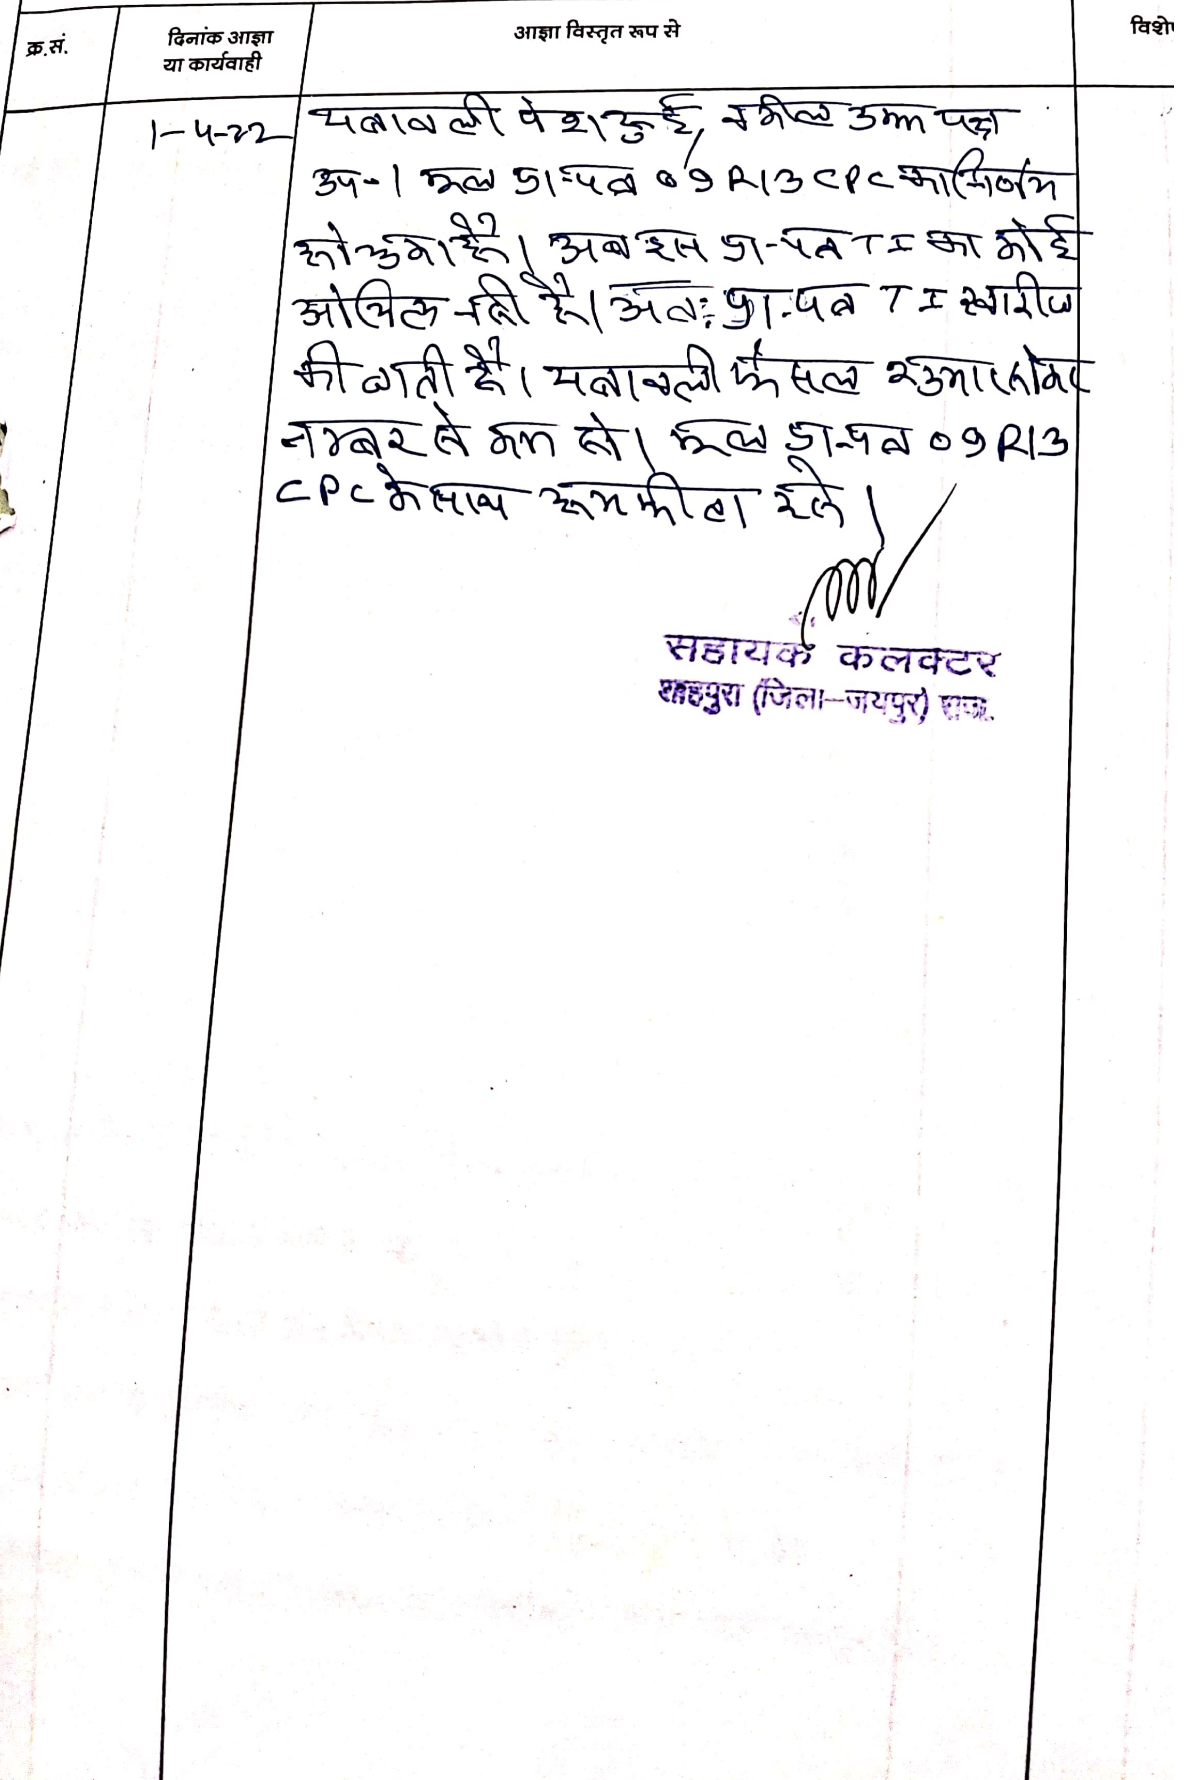 क्र.सं.
दिनांक आज्ञा
या कार्यवाही
आज्ञा विस्तृत रूप से
विशे
1-4-22
पत्रावली पेश हुई, वकील उभय पक्ष
उप. । मूल प्रा.पत्र 09 R13 CPC का निर्णय
हो चुका है। अब इस प्रा-पत्र TI का कोई
औचित्य नही है। अतः प्रा.पत्र TI खारीज
की जाती है। पत्रावली फैसल शुमार होकर
नम्बर से कम हो। मूल प्रा.पत्र 09 R13
CPC के साथ हमफीता रहे।
सहायक कलक्टर
शाहपुरा (जिला-जयपुर) राज.